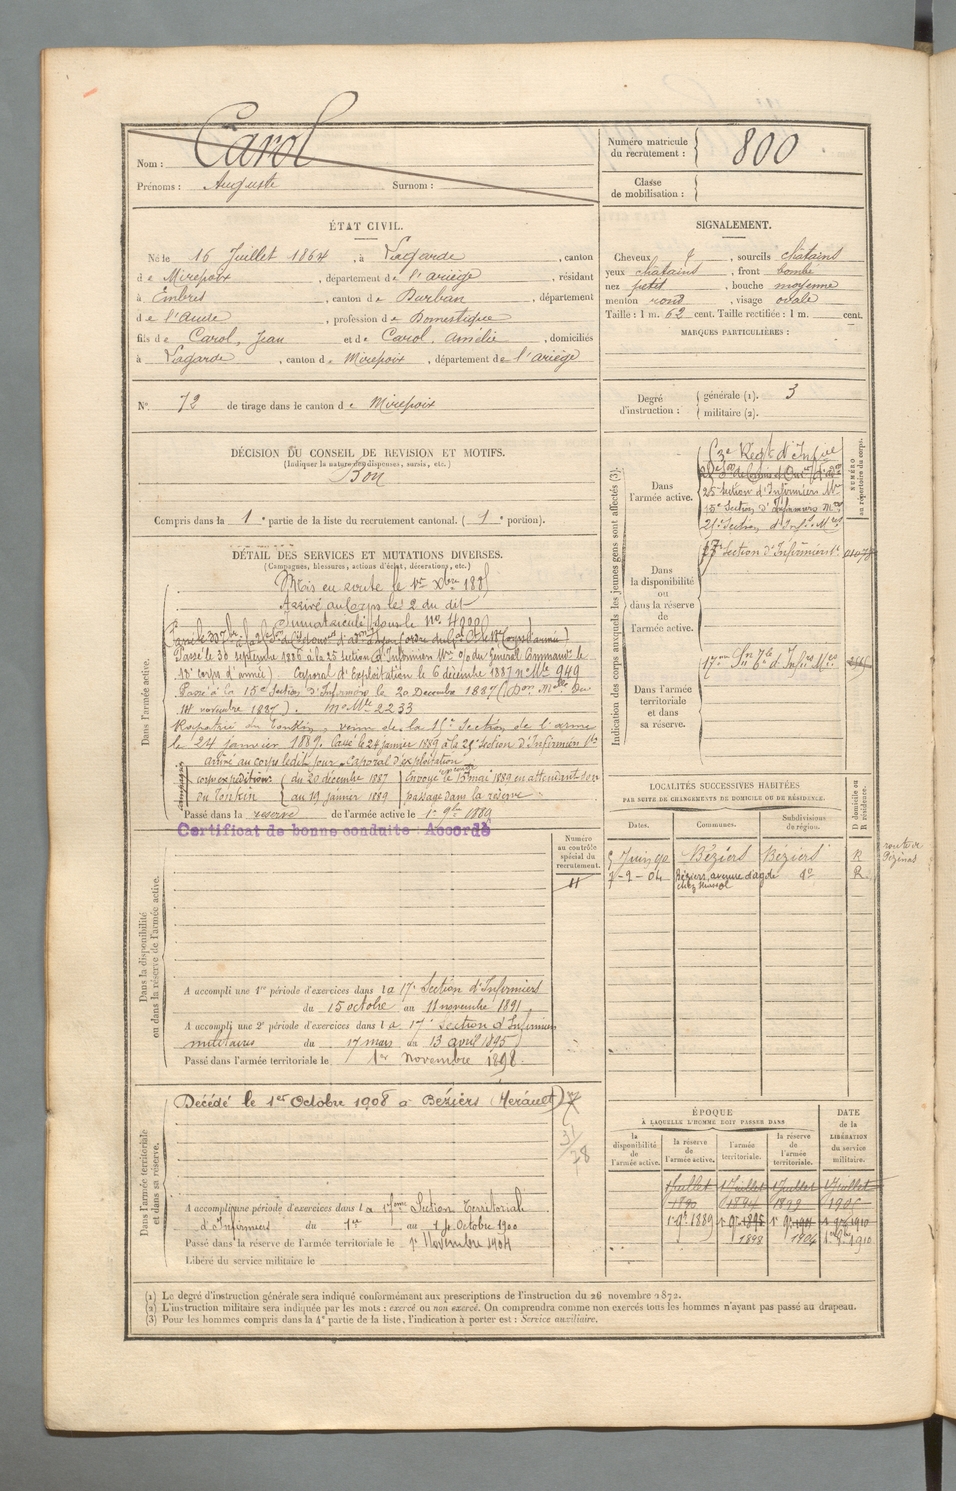 Nom : Carol
Prénoms : Auguste Surnom :
Numéro matricule du recrutement : 800
Classe de mobilisation :
ÉTAT CIVIL.
Né le 16 Juillet 1864, à Lagarde, canton
de Mirepoix, département de l'ariège, résidant
à Embres, canton de Durban, département
de l'Aude, profession de Domestique
fils de Carol, Jean et de Carol, Amélie, domiciliés
à Lagarde, canton de Mirepoix, département de l'ariège
N° 72 de tirage dans le canton de Mirepoix
SIGNALEMENT.
Cheveux , sourcils chatains
yeux chatains, front bombé
nez petit, bouche moyenne
menton rond, visage ovale
Taille : 1 m. 62 cent. Taille rectifiée : 1 m. cent.
MARQUES PARTICULIÈRES :
Degré d'instruction : générale (1). 3
militaire (2).
DÉCISION DU CONSEIL DE REVISION ET MOTIFS.
(Indiquer la nature des dispenses, sursis, etc.)
Bon
Compris dans la 1e partie de la liste du recrutement cantonal. (1e portion).
DÉTAIL DES SERVICES ET MUTATIONS DIVERSES.
(Campagnes, blessures, actions d'éclat, décorations, etc.)
Dans l'armée active.
Mis en route le 1er Xbre 1885
Arrivé au Corps le 2 du dit
Immatriculé sous le No 4900
Passé le 30 septembre 1886 à la 25 section d'Infirmiers Mres o/o du Général Command' le
18e corps d'armée) Caporal d'Exploitation le 6 décembre 1887 no Mle 949
Passé à la 15e Section d'Infirmiers le 20 Decembre 1887 (Don Melle du
14 novembre 1887). No Mle 2233
Rapatrié du Tonkin, venu de la 15e Section de l'arme
le 24 janvier 1889. Passé le 24 janvier 1889 à la 25e Section d'Infirmiers
arrivé au corps ledit jour Caporal d'exploitation
corps expéditionre du Tonkin du 20 décembre 1887 au 19 janvier 1889
Envoyé en congé le 15 mai 1889 en attendant son
passage dans la réserve
Passé dans la réserve de l'armée active le 1er 9bre 1889
Certificat de bonne conduite : Accordé
Indication des corps auxquels les jeunes gens sont affectés (3).
NUMÉRO au répertoire du corps.
Dans l'armée active.
25 Section d'Infirmiers Mres
15e Section d'Infirmiers Mres
25e Section d'Infirs Mres
Dans la disponibilité ou dans la réserve de l'armée active.
17e Section d'Infirmiers
Dans l'armée territoriale et dans sa réserve.
17me Son d'Infirs Mres
LOCALITÉS SUCCESSIVES HABITÉES
PAR SUITE DE CHANGEMENTS DE DOMICILE OU DE RÉSIDENCE.
Dates. Communes. Subdivisions de région. D domicile ou R résidence.
5 Juin 90 Béziers Béziers R route de Pézenas
7-9-04 Béziers, avenue d'agde do R.
Dans la disponibilité ou dans la réserve de l'armée active.
Numéro au contrôle spécial du recrutement.
A accompli une 1re période d'exercices dans la 17e Section d'Infirmiers
du 15 octobre au 11 novembre 1891
A accompli une 2e période d'exercices dans la 17e Section d'Infirmiers
militaires du 17 mars au 13 avril 1895
Passé dans l'armée territoriale le 1er Novembre 1898.
Dans l'armée territoriale et dans sa réserve.
Décédé le 1er Octobre 1908 à Béziers (Hérault)
31/28
A accompli une période d'exercices dans la 17ème Section Territoriale
d'Infirmiers du 1er au 14 Octobre 1900
Passé dans la réserve de l'armée territoriale le 1er Novembre 1904
Libéré du service militaire le
ÉPOQUE
À LAQUELLE L'HOMME DOIT PASSER DANS
DATE de la LIBÉRATION du service militaire.
la disponibilité de l'armée active. la réserve de l'armée active. l'armée territoriale. la réserve de l'armée territoriale.
1 Juillet 1 Juillet 1 Juillet 1 Juillet
1890 1894 1899 1905
1er 9bre 1889 1er 9bre 1895 1er 9bre 1901 1er 9bre 1910
1898 1904 1er 8bre 1910
(1) Le degré d'instruction générale sera indiqué conformément aux prescriptions de l'instruction du 26 novembre 1872.
(2) L'instruction militaire sera indiquée par les mots : exercé ou non exercé. On comprendra comme non exercés tous les hommes n'ayant pas passé au drapeau.
(3) Pour les hommes compris dans la 4e partie de la liste, l'indication à porter est : Service auxiliaire.